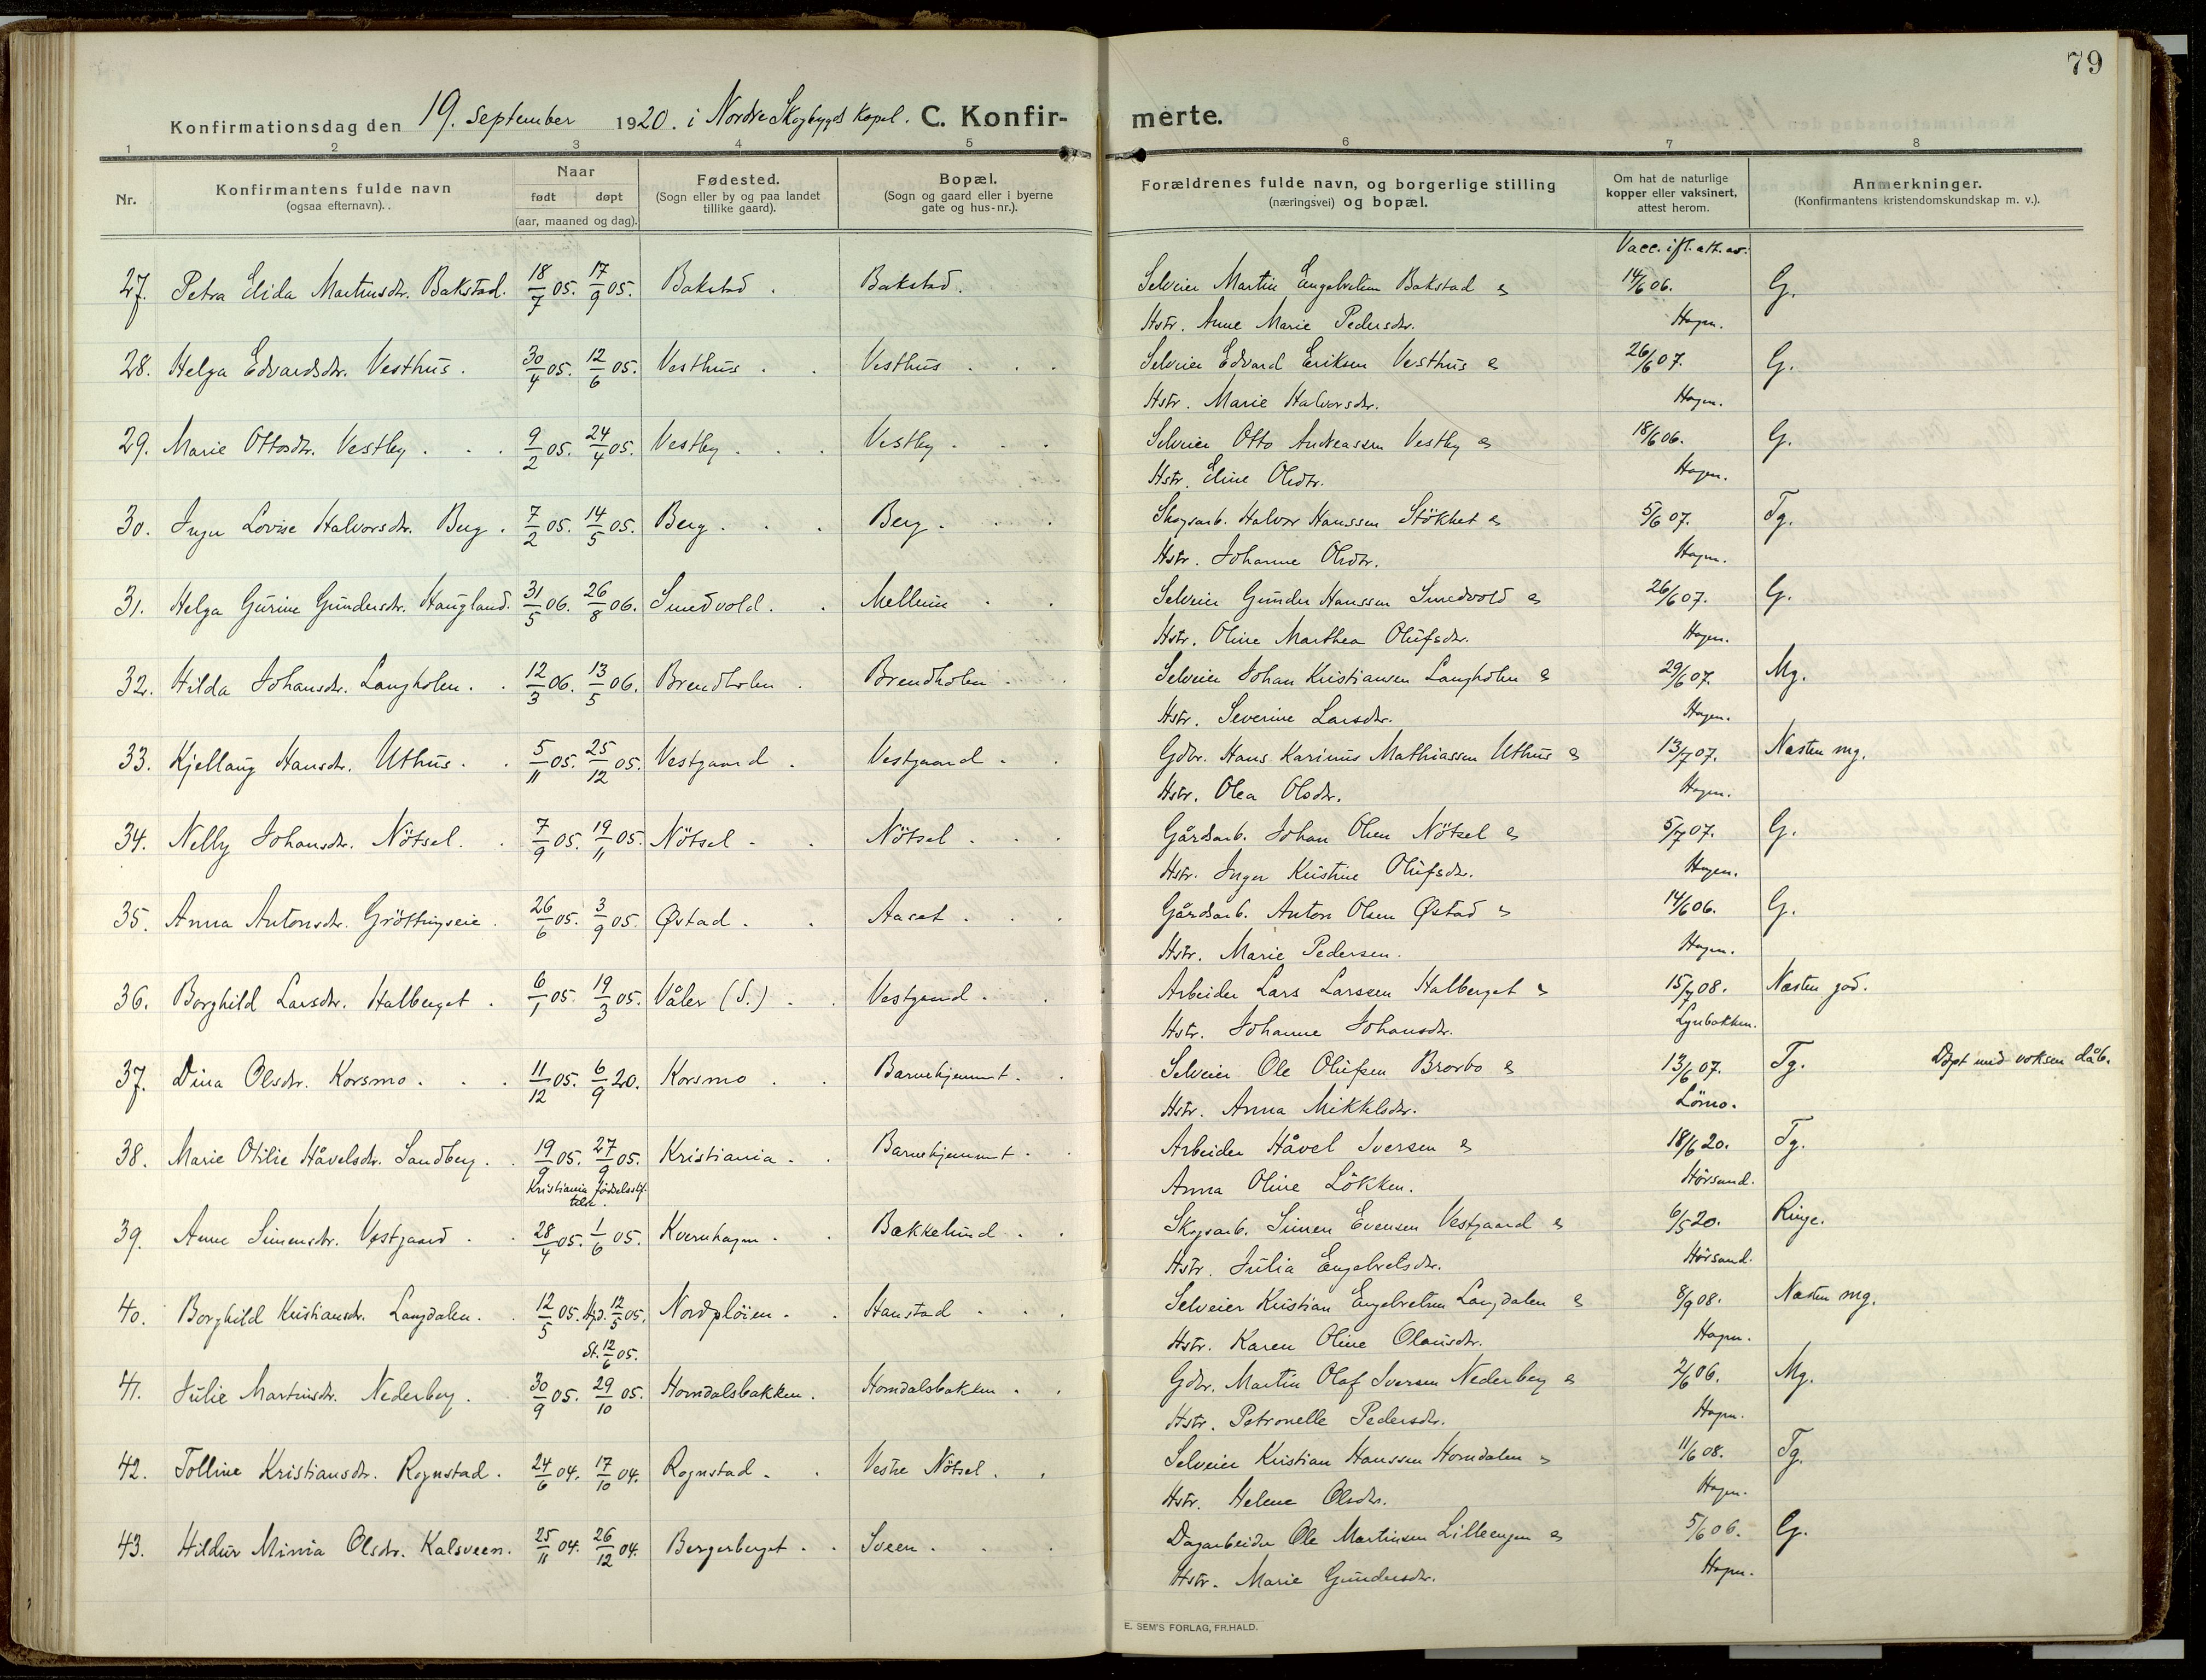 79
Konfirmationsdag den 19. september 1920. i Nordre Skogbygds Kapel. C. Konfirmerte.
1 2 3 4 5 6 7 8
Nr.
Konfirmantens fulde navn
(ogsaa efternavn).
Naar
født døpt
(aar, maaned og dag).
Fødested.
(Sogn eller by og paa landet
tillike gaard).
Bopæl.
(Sogn og gaard eller i byerne
gate og hus-nr.).
Forældrenes fulde navn, og borgerlige stilling
(næringsvei) og bopæl.
Om hat de naturlige
kopper eller vaksinert,
attest herom.
Anmerkninger.
(Konfirmantens kristendomskundskap m. v.).
Vacc. ifl. att. av:
27. Petra Elida Martinsdr. Bakstad. 18/7 05. 17/9 05. Bakstad. Bakstad. Selveier Martin Engebretsen Bakstad & 14/6 06. G.
Hstr. Anne Marie Pedersdr. Hagen.
28. Helga Edvardsdr. Vesthus. 30/4 05. 12/6 05. Vesthus. Vesthus. Selveier Edvard Eriksen Vesthus & 26/6 07. G.
Hstr. Marie Halvorsdr. Hagen.
29. Marie Ottosdr. Vestby. 9/2 05. 24/4 05. Vestby. Vestby. Selveier Otto Andreassen Vestby & 18/6 06. G.
Hstr. Eline Olsdtr. Hagen.
30. Inga Lovise Halvorsdr. Berg. 7/2 05. 14/5 05. Berg. Berg. Skogsarb. Halvor Hanssen Stökket & 5/6 07. Tg.
Hstr. Johanne Olsdtr. Hagen.
31. Helga Gurine Gundersdr. Haugland. 31/5 06. 26/8 06. Smedvold. Mellem Selveier Gunder Hanssen Smedvold & 26/6 07. G.
Hstr. Oline Marthea Olufsdr. Hagen.
32. Hilda Johansdr. Langholen. 12/3 06. 13/5 06. Brendholen. Brendholen. Selveier Johan Kristiansen Langholen & 29/6 07. Mg.
Hstr. Severine Larsdtr. Hagen.
33. Kjellaug Hansdr. Uthus. 5/11 05. 25/12 05. Vestgaard. Vestgaard. Gdbr. Hans Karinus Mathiassen Uthus & 13/7 07. Næsten mg.
Hstr. Olea Olsdr. Hagen.
34. Nelly Johansdr. Nötsel. 7/9 05. 19/11 05. Nötsel. Nötsel. Gårdsarb. Johan Olsen Nötsel & 5/7 07. G.
Hstr. Inga Kristine Olufsdr. Hagen.
35. Anna Antonsdr. Gröttingseie. 26/6 05. 3/9 05. Østad. Aaset. Gårdsarb. Anton Olsen Østad & 14/6 06. G.
Hstr. Marie Pedersen. Hagen.
36. Borghild Larsdtr. Halberget. 6/1 05. 19/3 05. Våler (S.) Vestgaard. Arbeider Lars Larssen Halberget & 15/7 08. Næsten god.
Hstr. Johanne Johansdr. Lynbakken.
37. Dina Olsdr. Korsmo. 11/12 05. 6/9 20. Korsmo. Barnehjemmet. Selveier Ole Olufsen Brorbo & 13/6 07. Tg. Døpt med voksen dåb.
Hstr. Anna Mikkelsdr. Lömo.
38. Marie Otilie Håvelsdr. Sandberg. 19/9 05. 27/9 05. Kristiania. Barnehjemmet. Arbeider Håvel Iversen & 18/6 20. Tg.
Kristiania fødselsstif-
telse.
Anna Oline Lökken. Hörsand.
39. Anne Simensdr. Vestgaard. 28/4 05. 1/6 05. Kvernhagen. Bækkelund. Skogsarb. Simen Evensen Vestgaard & 6/5 20. Ringe.
Hstr. Julia Engebretsdr. Hörsand.
40. Borghild Kristiansdr. Langdalen. 12/5 05. Hjd. 12/5 05. Nordpløien. Hanstad. Selveier Kristian Engebretsen Langdalen & 8/9 08. Næsten mg.
St. 12/6 05.
Hstr. Karen Oline Olausdtr. Hagen.
41. Julie Martinsdr. Nederberg. 30/9 05. 29/10 05. Homdalsbakken. Homdalsbakken. Gdbr. Martin Olaf Iversen Nederberg & 2/6 06. Mg.
Hstr. Petronelle Pedersdr. Hagen.
42. Tolline Kristiansdr. Rognstad. 24/6 04. 17/10 04. Rognstad. Vestre Nötsel. Selveier Kristian Hanssen Homdalen & 11/6 08. Tg.
Hstr. Helene Olsdr. Hagen.
43. Hildur Minia Olsdr. Kalsveen. 25/11 04. 26/12 04. Bergerberget. Sveen. Dagarbeider Ole Martinsen Lilleengen & 5/6 06. G.
Hstr. Marie Gundersdr. Hagen.
E. SEM'S FORLAG, FR.HALD.